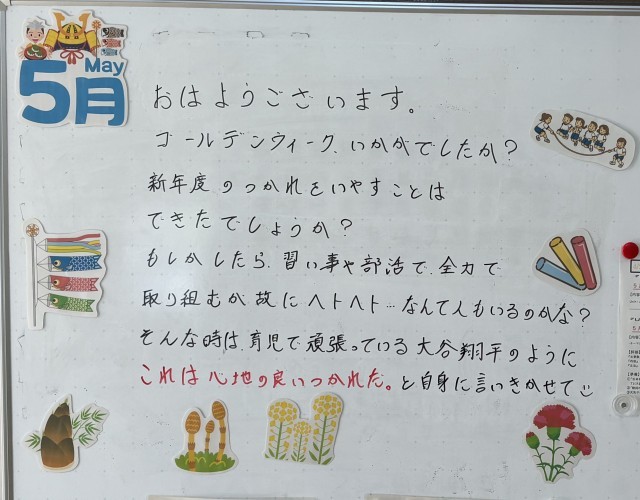 5月
May
おはようございます。
ゴールデンウィーク、いかがでしたか?
新年度のつかれをいやすことは
できたでしょうか?
もしかしたら、習い事や部活で、全力で
取り組むが故にヘトヘト…なんて人もいるのかな?
そんな時は、育児で頑張っている大谷翔平のように
これは心地の良いつかれだ。と自身に言いきかせて